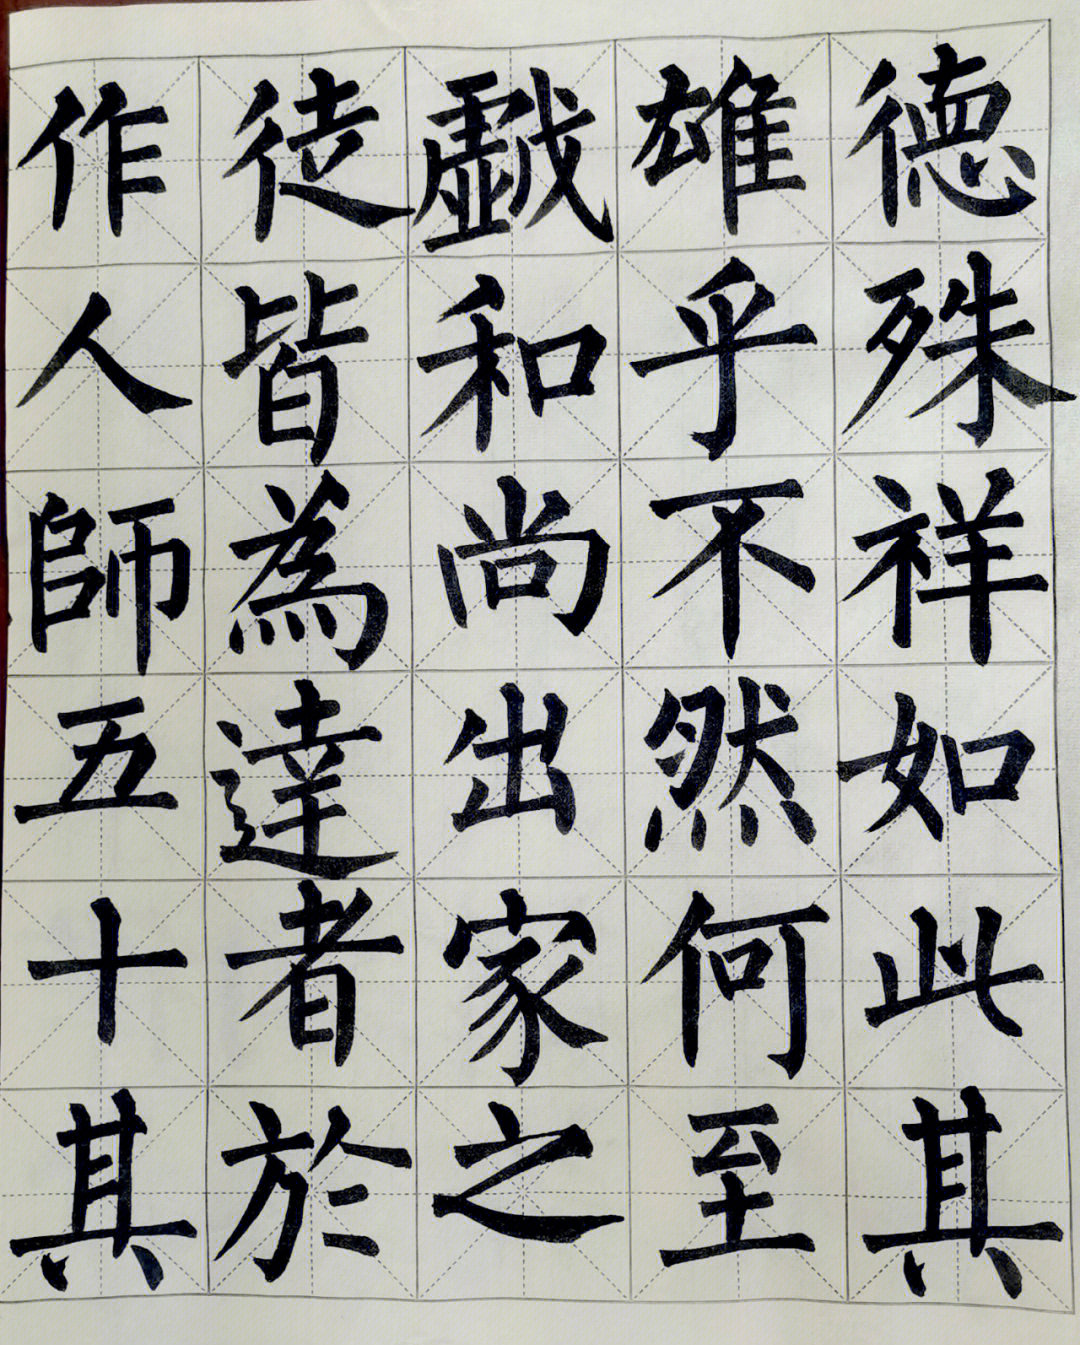 德殊祥如此其
雄乎不然何至
戯和尚出家之
徒皆為達者於
作人師五十其